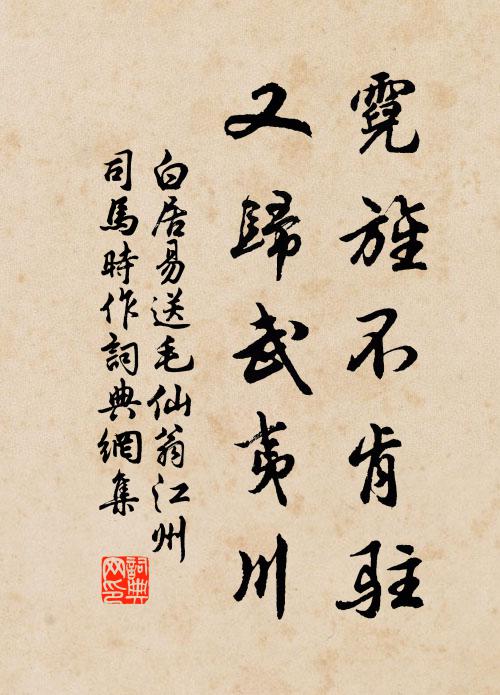 霓旌不肯駐
又歸武夷川
白居易送毛仙翁江州
司馬時作詞典網集
詞典
网印